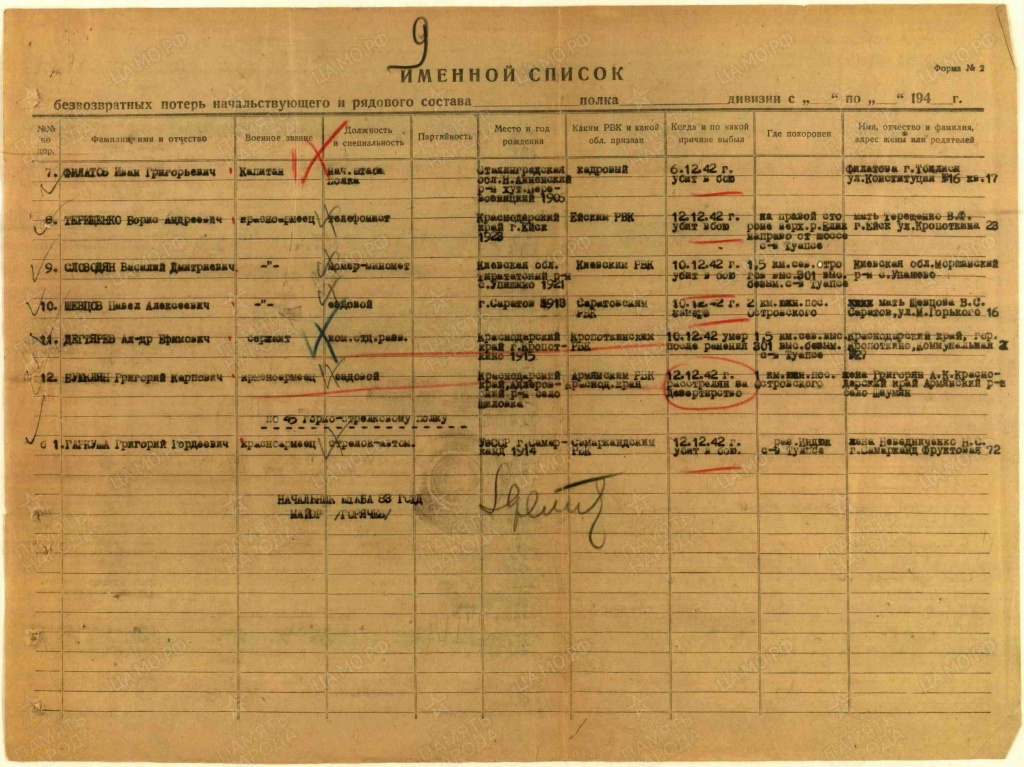 9
ИМЕННОЙ СПИСОК
Форма № 2
безвозвратных потерь начальствующего и рядового состава полка дивизии с „ “ по „ “ 194 г.
№№ по пор.
Фамилия, имя и отчество
Военное звание
Должность и специальность
Партийность
Место и год рождения
Каким РВК и какой обл. призван
Когда и по какой причине выбыл
Где похоронен
Имя, отчество и фамилия, адрес жены или родителей
7. ФИЛАТОВ Иван Григорьевич
Капитан
нач.штаба полка
Сталинградская
обл.Н.Анненский
р-н хут.
1905
кадровый
6.12.42 г.
убит в бою
Филатова г.Тбилиси
ул.Конституции №16 кв.17
8. ТЕРЕЩЕНКО Борис Андреевич
красноармеец
телефонист
Краснодарский
край г.Ейск
1923
Ейским РВК
12.12.42 г.
убит вбою
на правой сто
роне верх.р.
направо от шоссе
с-в Туапсе
мать Терещенко В.Ф.
г.Ейск ул.Кропоткина 23
9. СЛОБОДЯН Василий Дмитриевич
-"-
номер-миномет
Киевская обл.
р-н
1921
Киевским РВК
10.12.42 г.
убит в бою
1,5 км.сев.
выс.301
безым.с-в Туапсе
Киевская обл.
р-н с.
10. ШЕВЦОВ Павел Алексеевич
-"-
ездовой
г.Саратов 1913
Саратовским
РВК
10.12.42 г.
умер
2 км.южн.пос.
Островского
мать Шевцова В.С.
Саратов,ул.М.Горького 16
11. ДЕГТЯРЕВ Ал-др Ефимович
сержант
ком.отд.разв.
Краснодарский
край г.Кропот-
кино 1915
Кропоткинским
РВК
10.12.42 умер
после ранения
1,5 км.сев.выс
301 выс.безым.
с-в Туапсе
Краснодарский край, гор.
Кропоткино,коммунальная
127
12. Григорий Карпович
красноармеец
ездовой
Краснодарский
край,Адлеров-
ский р-н село
Шиловка
Армянским РВК
Краснод.край
12.12.42 г.
Расстрелян за
дезертирство
1 км.южн.пос.
Островского
жена Григорян А.К.Красно-
дарский край Армянский р-н
село Шаумян
по 45 горно-стрелковому полку
1. ГАРКУША Григорий Гордеевич
красноармеец
стрелок-автом.
УзССР г.Самар-
канд 1914
Самаркандским
РВК
12.12.42 г.
убит в бою.
раз.Индюк
с-в Туапсе
жена Невядниченко Н.С.
г.Самарканд Фруктовая 72
НАЧАЛЬНИК ШТАБА 83 ГСТД
МАЙОР /ГОРЯЧЕВ/
ЦАМО.РФ
ПАМЯТЬ НАРОДА